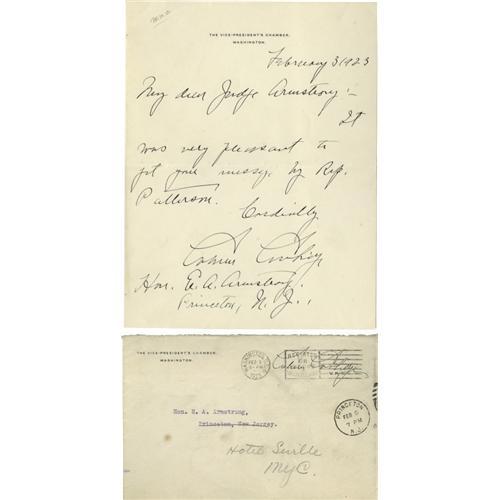 THE VICE-PRESIDENT'S CHAMBER.
WASHINGTON.
February 3 1923
My dear Judge Armstrong :-
It
was very pleasant to
get your message by Rep.
Patterson.
Cordially
Calvin Coolidge
Hon. E. A. Armstrong.
Princeton, N. J.,
THE VICE-PRESIDENT'S CHAMBER.
WASHINGTON.
WASHINGTON
FEB 5
1923
Calvin Coolidge
Hon. E. A. Armstrong,
Princeton, New Jersey.
PRINCETON
FEB 5
7 PM
N.J.
Hotel Seville
NYC.